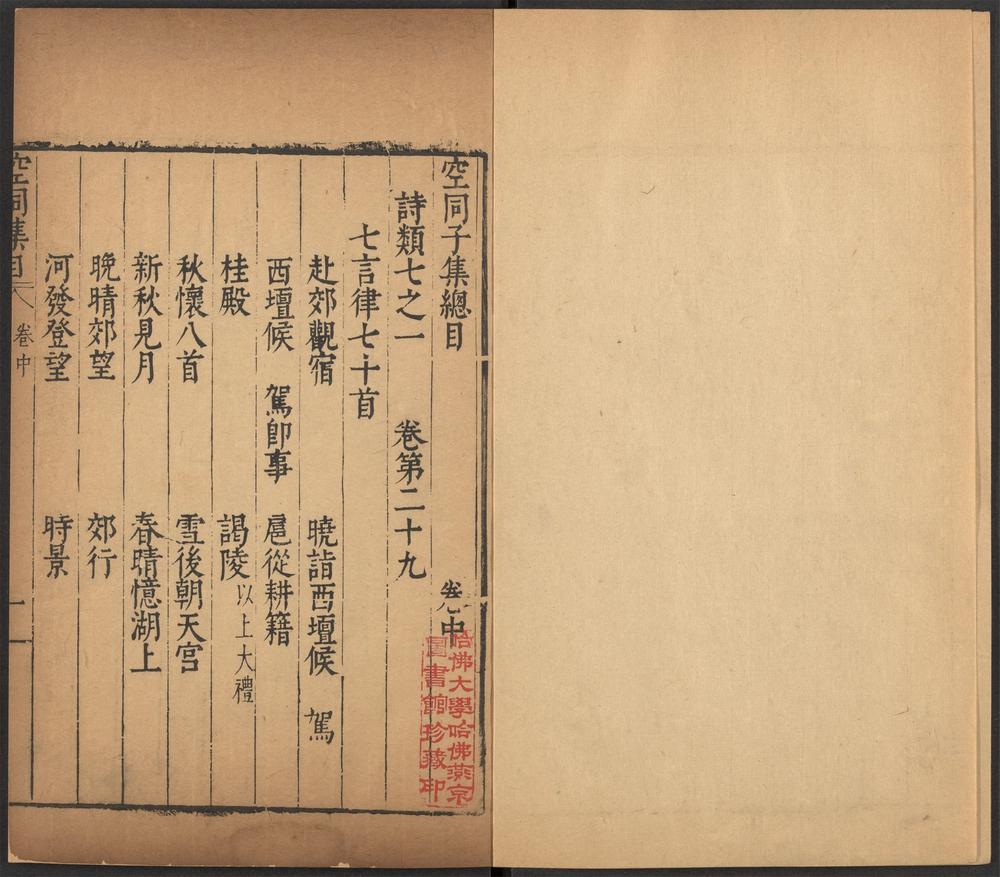 空同子集總目　卷中
詩類七之一　卷第二十九
七言律七十首
赴郊觀宿　曉詣西壇候　駕
西壇候　駕卽事　扈從耕籍
桂殿　謁陵以上大禮
秋懷八首　雪後朝天宮
新秋見月　春晴憶湖上
晚晴郊望　郊行
河發登望　時景
空同集目　卷中　一
哈佛大學哈佛燕京
圖書館珍藏印